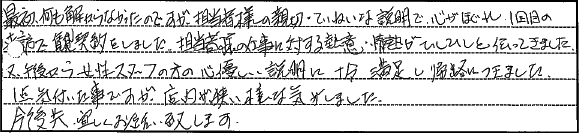 最初、何も解らなかったのですが、担当者様の親切・ていねいな説明で、心がほぐれ、1回目の
訪問で、契約をしました。担当者様の仕事に対する熱意、情熱がひしひしと伝ってきました。
又、午後から女性スタッフの方の心優しい説明に十分満足し帰路につきました。
1点気付いた事ですが、店内が狭い様な気がしました。
今後共、宜しくお願い致します。